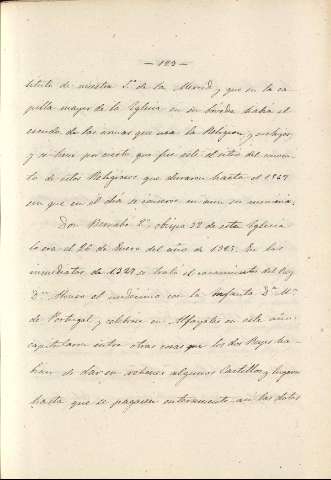 — 123 —
titulo de nuestra S.ª de la Merced, y que en la ca-
pilla mayor de la Iglesia en su bóveda habia el
escudo de las armas que usa la Religion,
y se tiene por cierto que fue este el sitio del
de estos Religiosos que duraron hasta el
en que en el dia se conserva en aun su memoria.
Don Bernabé 2.º, obispo 32 de esta Iglesia
lo era el 26 de Enero del año de En los
inmediatos de se trató el casamiento del Rey
D.ⁿ Alonso el undecimo con la Infanta D.ª M.ª
de Portugal, y celebrose en Alfayates en este año:
capitularon entre otras cosas que los dos Reyes ha-
bian de dar en rehenes algunos Castillos y lugares
hasta que se pagasen enteramente las dotes